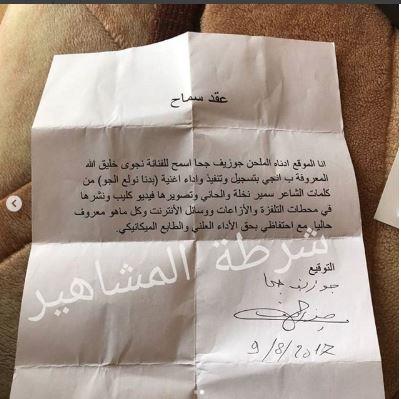 عقد سماح
انا الموقع ادناه الملحن جوزيف جحا اسمح للفنانة نجوى خليق الله
المعروفة ب انجي بتسجيل وتنفيذ واداء اغنية (بدنا نولع الجو) من
كلمات الشاعر سمير نخلة والحاني وتصويرها فيديو كليب ونشرها
في محطات التلفزة والأزاعات ووسائل الأنترنت وكل ماهو معروف
حاليا، مع احتفاظي بحق الأداء العلني والطابع الميكانيكي.
شرطة المشاهير
التوقيع
جوزيف جحا
9/8/2017